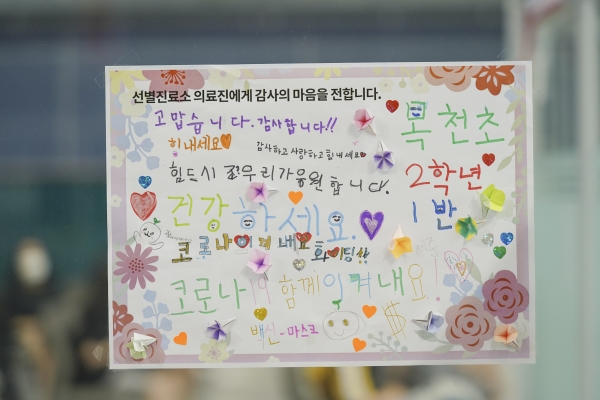 선별진료소 의료진에게 감사의 마음을 전합니다.
고맙습니다. 감사합니다!!
복천초
힘내세요
감사하고 사랑하고 힘내세요
2학년
힘드시죠 우리가 응원합니다.
1반
건강하세요.
코로나 이겨내요
화이팅
코로나 함께 이겨내요!
백신-마스크
$